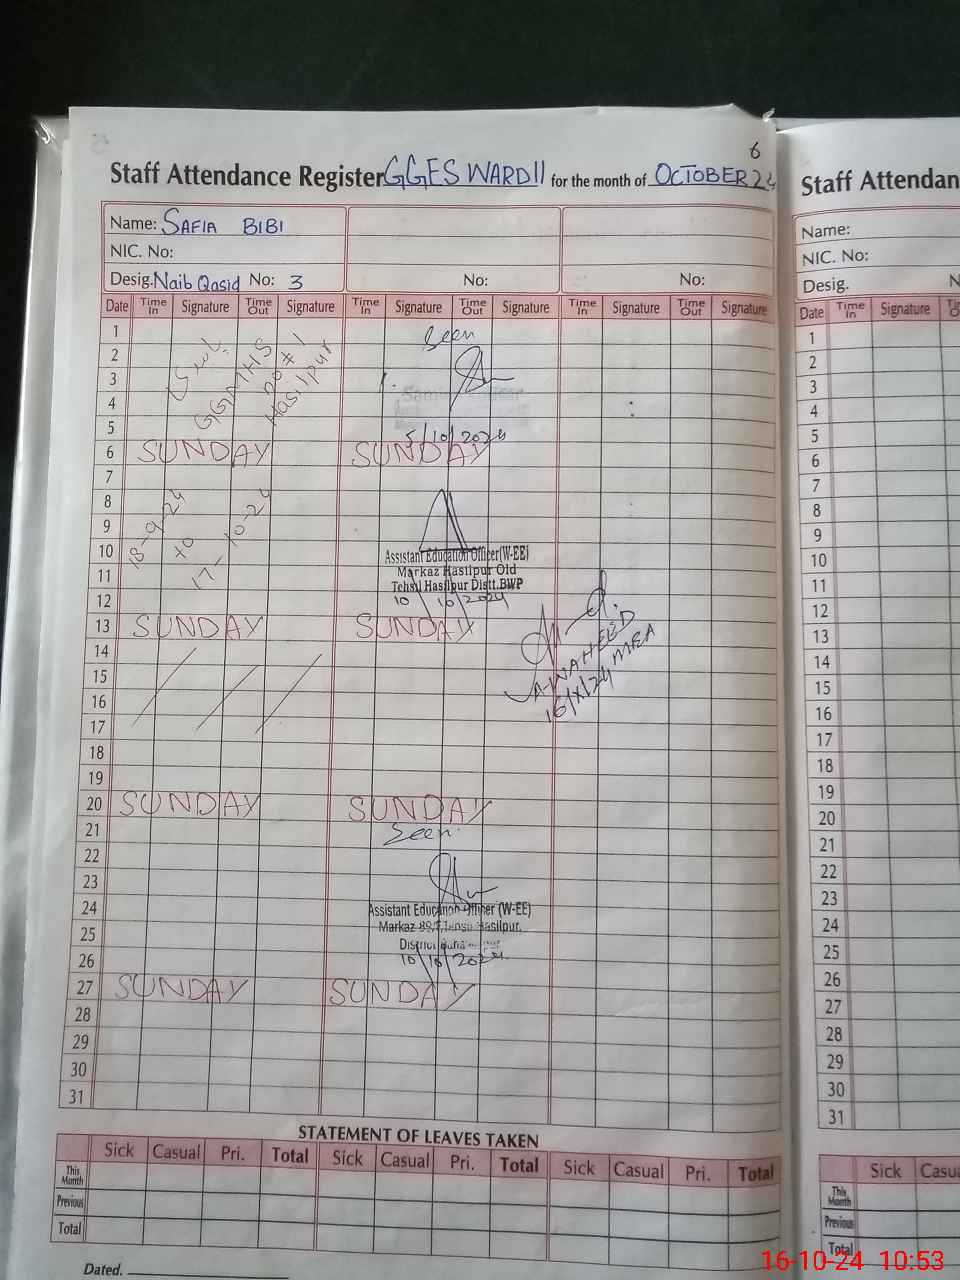 6
Staff Attendance Register GGES WARD 11 for the month of OCTOBER 24
Name: SAFIA BIBI
NIC. No:
Desig. Naib Qasid No: 3
No:
No:
Date Time In Signature Time Out Signature Time In Signature Time Out Signature Time In Signature Time Out Signature
1
2
3
4
5
6
7
8
9
10
11
12
13
14
15
16
17
18
19
20
21
22
23
24
25
26
27
28
29
30
31
GGMHS
no # 1
Hasilpur
Seen
5/10/2024
SUNDAY SUNDAY
18-9-24
to
17-10-24
Assistant Education Officer (W-EE)
Markaz Hasilpur Old
Tehsil Hasilpur Distt. BWP
10/10/2024
SUNDAY SUNDAY
NAHEED
16/X/24 MEA
SUNDAY SUNDAY
Seen
Assistant Education Officer (W-EE)
Markaz Tehsil Hasilpur.
District
10/10/2024
SUNDAY SUNDAY
STATEMENT OF LEAVES TAKEN
Sick Casual Pri. Total Sick Casual Pri. Total Sick Casual Pri. Total
This Month
Previous
Total
Dated.
Staff Attendan
Name:
NIC. No:
Desig.
N
Date Time In Signature Time Out
1
2
3
4
5
6
7
8
9
10
11
12
13
14
15
16
17
18
19
20
21
22
23
24
25
26
27
28
29
30
31
Sick Casu
This Month
Previous
Total
16-10-24 10:53